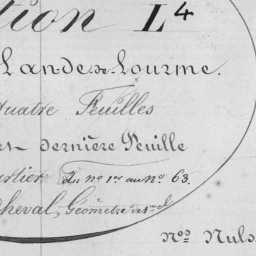 tion L4
Lande de Lourme.
quatre Feuilles
dernière Feuille
Du no 1er au no 63.
Cheval, Géomètre
Nos Nuls